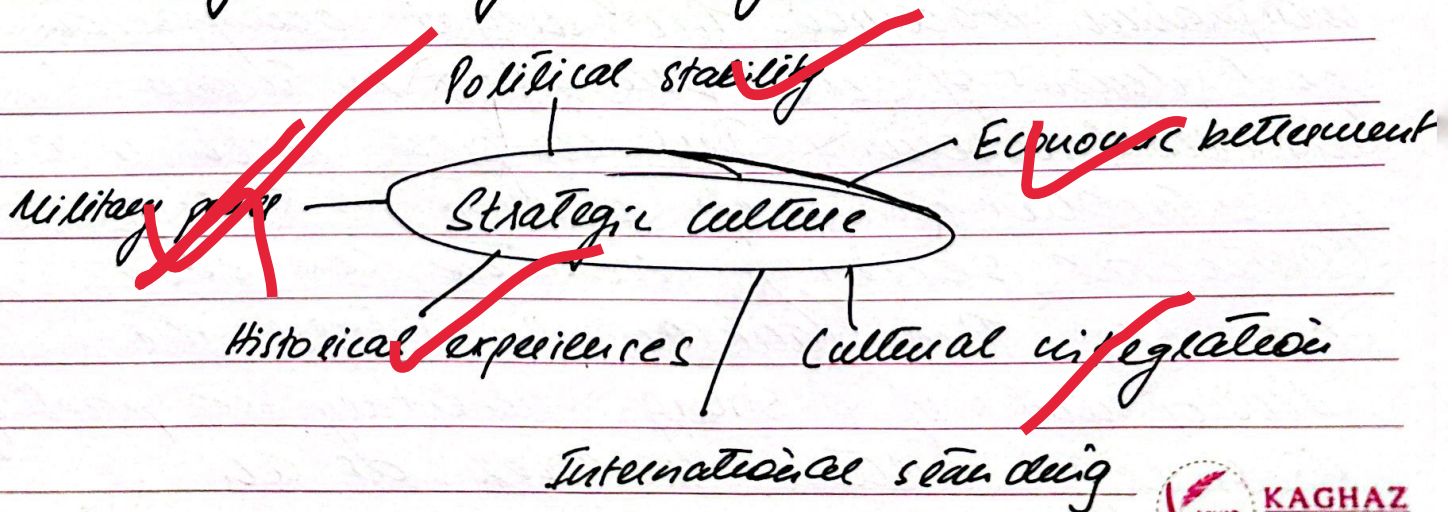 Political stability
Economic betterment
Military power
Strategic culture
Historical experiences
Cultural integration
International standing
KAGHAZ